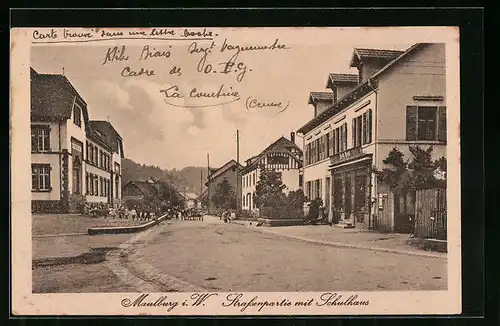 Carte trouvé dans une lettre boche.
Mle Biais Sergt Vaguemestre
Cadre de O.E.G.
La Courtine (Creuse)
Maulburg i. W. Straßenpartie mit Schulhaus